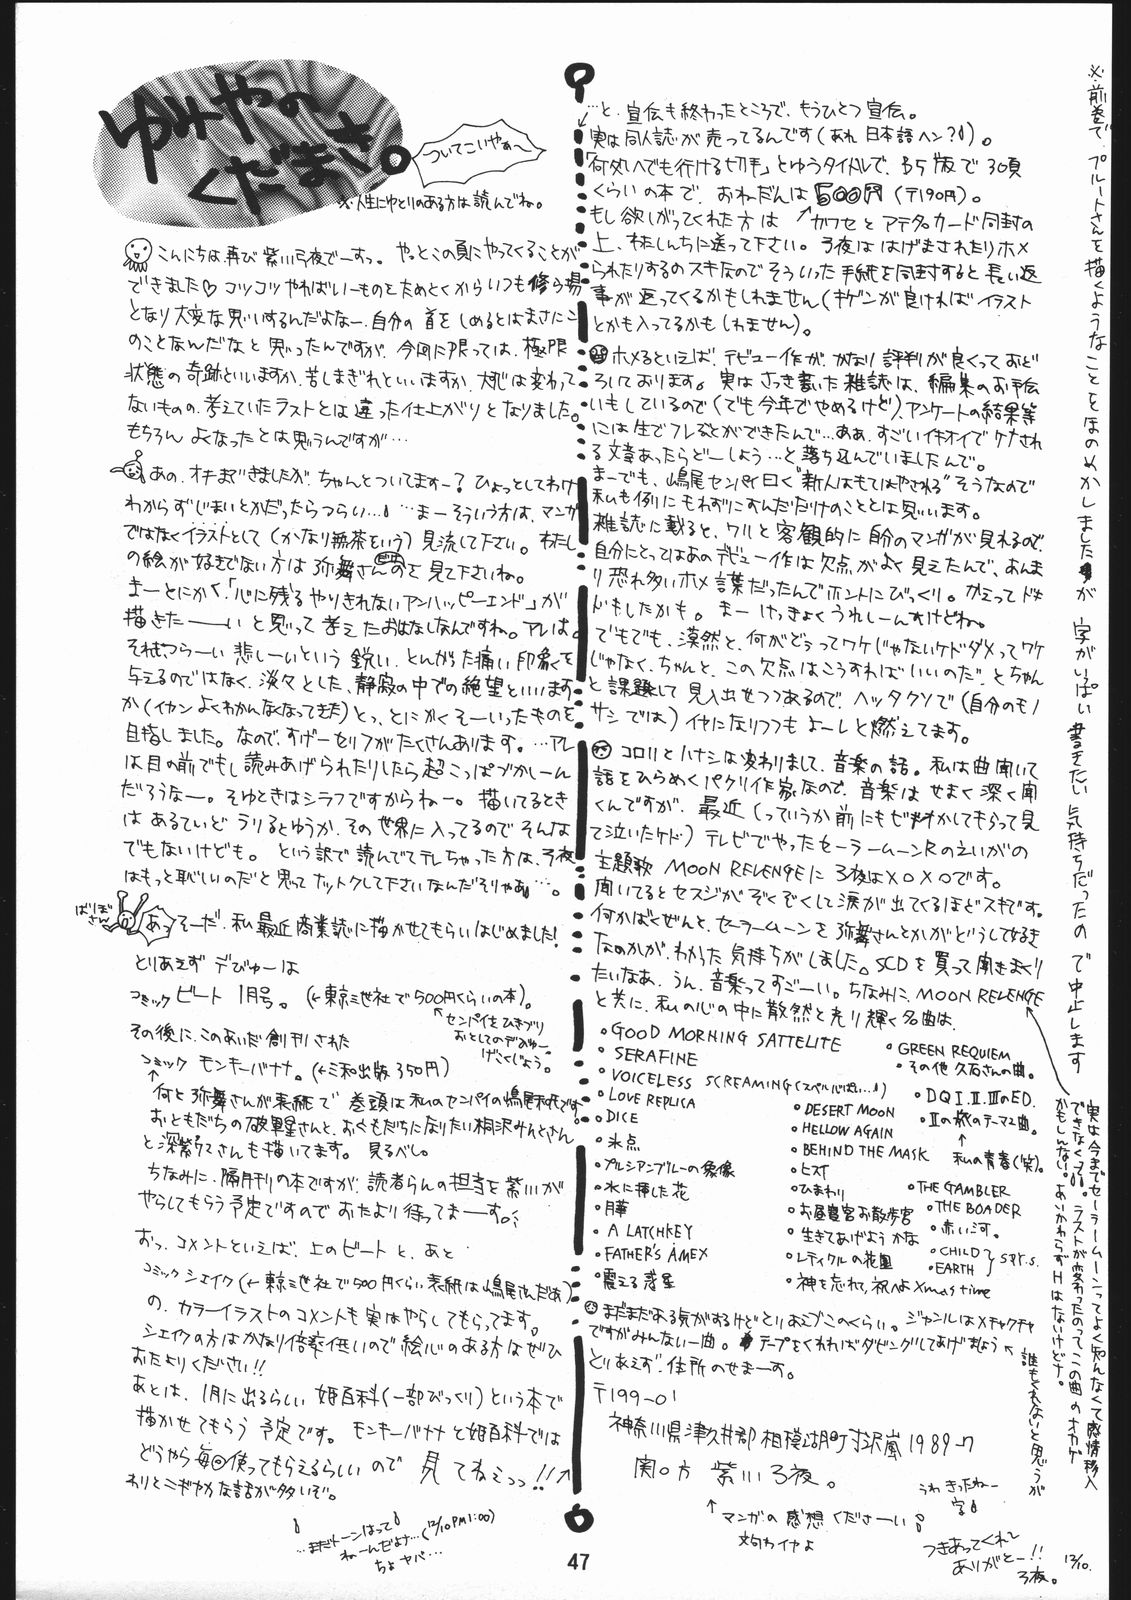 ゆみやの
くだまき。
ついてこいやぁ〜
※人生にゆとりのある方は読んでね。
こんにちは、再び紫川弓夜でーすっ。やっとこの頁にやってくることが
できました♡コツコツやればいーものをためとくからいつも修ら場
となり大変な思いするんだよなー、自分の首をしめるとはまさにこ
のことなんだなと思ったんですが、今回に限っては、極限
状態の奇跡といいますか、苦しまぎれといいますか、大すじは変わって
ないものの、考えていたラストとは違った仕上がりとなりました。
もちろん よくなったとは思うんですが…
あの、オキまできましたが、ちゃんとついてますー?ひょっとしてわけ
わからずじまいとかだったらつらい…。…まーそういう方は、マンガ
ではなくイラストとして(かなり無茶をいう)見流して下さい。わたし
の絵が好きでない方は弥舞さんのを見て下さいね。
まーとにかく、「心に残るやりきれないアンハッピーエンド」が
描きたーーいと思って考えたおはなしなんですね。アレは。
それも、つらーい悲しーいという鋭い、とんがった痛い印象を
与えるのではなく、淡々とした、静寂の中での絶望といいます
か(イカンよくわかんなくなってきた)とっ、とにかくそーいったものを
目指しました。なので、すげーセリフがたくさんあります。…アレ
は目の前でもし読みあげられたりしたら超こっぱづかしーん
だろうなー。そゆときはシラフですからねー。描いてるとき
はあるていどラリるとゆうか、その世界に入ってるのでそんな
でもないけども。という訳で読んでてテレちゃった方は、弓夜
はもっと恥しいのだと思ってナットクして下さいなんだそりゃあ…。
ばりぼさん
あっそーだ、私最近商業誌に描かせてもらいはじめました!
とりあえずデびゅーは
コミックビート1月号。(←東京三世社で500円くらいの本)。
センパイをひきづり
おとしてのデびゅー。
げこくじょう。
その後に、このあいだ創刊された
コミックモンキーバナナ。(←三和出版350円)
何と弥舞さんが表紙で巻頭は私のセンパイの嶋尾和です
おともだちの破軍星さんと、おともだちになりたい相沢みんとさん
と深紫さんも描いてます。見るべし。
ちなみに、隔月刊の本ですが、読者らんの担当を紫川が
やらしてもらう予定ですのでおたより待ってまーーす。
おっ、コメントといえば、上のビートと、あと
コミックシェイク(←東京三世社で500円くらい表紙は嶋尾さんだぁ)
の、カラーイラストのコメントも実はやらしてもらってます。
シェイクの方はかなり倍率低いので絵心のある方はぜひ
おたよりください!!
あとは、1月に出るらしい姫百科(一部びっくり)という本で
描かせてもらう予定です。モンキーバナナと姫百科では
どうやら毎回使ってもらえるらしいので見てねえっっ!!
わりとニギやかな話が多いぞ。
…まだトーンはって
ねーんだよナ…(12/10PM1:00)
ちょヤバ…
…と、宣伝も終わったところで、もうひとつ宣伝。
実は同人誌が売ってるんです(あれ日本語ヘン?)。
「何処へでも行ける切手」とゆうタイトルで、B5版で30頁
くらいの本で、おねだんは500円(〒190円)。
もし欲しがってくれた方はカワセとアテ名カード同封の
上、わたしんちに送って下さい。弓夜ははげまされたりホメ
られたりするのスキなのでそういった手紙を同封すると長い返
事が返ってくるかもしれません(キゲンが良ければイラスト
とかも入ってるかもしれません)。
ホメるといえば、デビュー作が、かなり評判が良くっておど
ろいております。実はさっき書いた雑誌は、編集のお手伝
いもしているので(でも今年でやめるけど)、アンケートの結果等
には生でフレることができたんで…ああ、すごいイキオイでケナされ
る文章あったらどーしよう…と落ち込んでいましたんで。
まーでも、嶋尾センパイ曰く"新人はもてはやされる"そうなので
私も例にもれずにすんだだけのこととは思います。
雑誌に載ると、ワリと客観的に自分のマンガが見れるので、
自分にとってはあのデビュー作は欠点がよく見えたんで、あんま
り恐れ多いホメ言葉だったんでホントにびっくり。かえってドキ
ドキもしたかも。まーけっきょくうれしーんすけどね。
でもでも、漠然と、何がどうってワケじゃないケドダメってワケ
じゃなく、ちゃんと、この欠点はこうすればいいのだ、とちゃん
と課題として見い出せつつあるので、ヘッタクソで(自分のモノ
サシでは)イヤになりつつもよーしと燃えてます。
コロリとハナシは変わりまして、音楽の話。私は曲聞いて
話をひらめくパクリ作家なので、音楽はせまく深く聞
くんですが、最近(っていうか前にもビデオかしてもらって見
て泣いたケド)テレビでやったセーラームーンRのえいがの
主題歌 MOON REVENGEに弓夜はXOXOです。
聞いてるとセスジがぞくぞくして涙が出てくるほどスキです。
何かばくぜんと、セーラームーンを弥舞さんとかがどうして好き
なのかが、わかった気持ちがしました。SCDを買って聞きまくり
たいなあ。うん、音楽ってすごーい。ちなみに、MOON REVENGE
と共に、私の心の中に散然と光り輝く名曲は、
・GOOD MORNING SATTELITE
・SERAFINE
・VOICELESS SCREAMING(スペル心ぱい…)
・LOVE REPLICA
・DICE
・氷点
・プルシアンブルーの肖像
・水に挿した花
・月華
・A LATCHKEY
・FATHER'S AMEX
・震える惑星
・DESERT MOON
・HELLOW AGAIN
・BEHIND THE MASK
・ヒズミ
・ひまわり
・お昼寝宮お散歩宮
・生きてあげようかな
・レティクルの花園
・神を忘れて、祝えよXmas time
・GREEN REQUIEM
・その他久石さんの曲。
・DQⅠ.Ⅱ.ⅢのED.
・Ⅱの旅のテーマ2曲。
私の青春(笑)。
・THE GAMBLER
・THE BOADER
・赤い河。
・CHILD
・EARTH
まだまだある気がするけどとりあえずこのくらい。ジャンルはメチャクチャ
ですがみんないー曲。テープをくれればダビングしてあげましょう
誰もくれないと思うが
とりあえず、住所のせまーす。
〒199-01
神奈川県津久井郡相模湖町寸沢嵐1989-7
関口方 紫川弓夜。
マンガの感想くださーい。
文句わイヤよ
うわきったねー
字
つきあってくれて
ありがとー!!
弓夜。
12/10.
47
※前巻で、プルートさんを描くようなことをほのめかしましたが字がいっぱい書きたい気持ちだったので中止します
実は今までセーラームーンってよく知んなくて感情移入
できなくって。ラストが変わったのってこの曲のオカゲ
かもしんない。あいかわらずHはないけどナ。